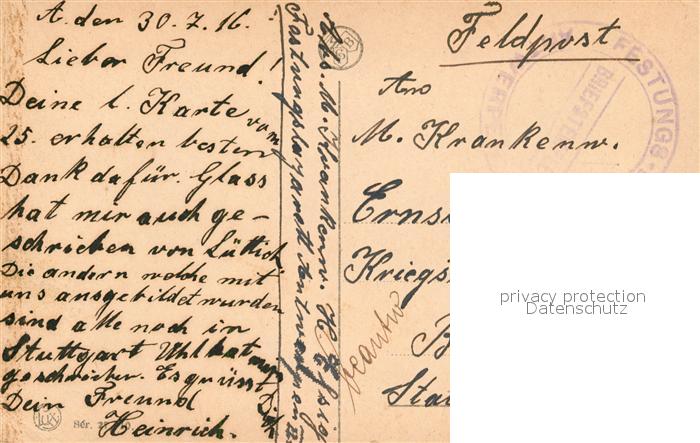 A. den 30.7.16.
Lieber Freund!
Deine l. Karte vom
25. erhalten besten
Dank dafür. Glass
hat mir auch ge-
schrieben von Lüttich
Die andern welche mit
uns ausgebildet wurden
sind alle noch in
Stuttgart Uhl hat mir
geschrieben. Es grüsst Dich
Dein Freund
Heinrich.
Abs. M. Krankenw. H.
Festungslazarett Antwerpen
Feldpost
An
M. Krankenw.
Erns
Kriegs
B
Sta
beantw
FESTUNGS
BRIEFSTE
privacy protection
Datenschutz
Lux
Sér.